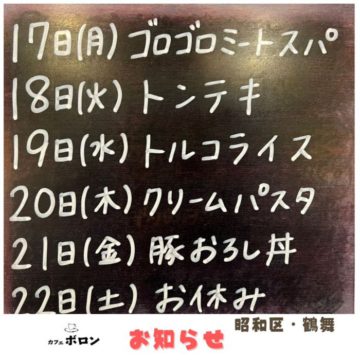 17日(月) ゴロゴロミートスパ
18日(火) トンテキ
19日(水) トルコライス
20日(木) クリームパスタ
21日(金) 豚おろし丼
22日(土) お休み
カフェ ボロン
お知らせ
昭和区・鶴舞